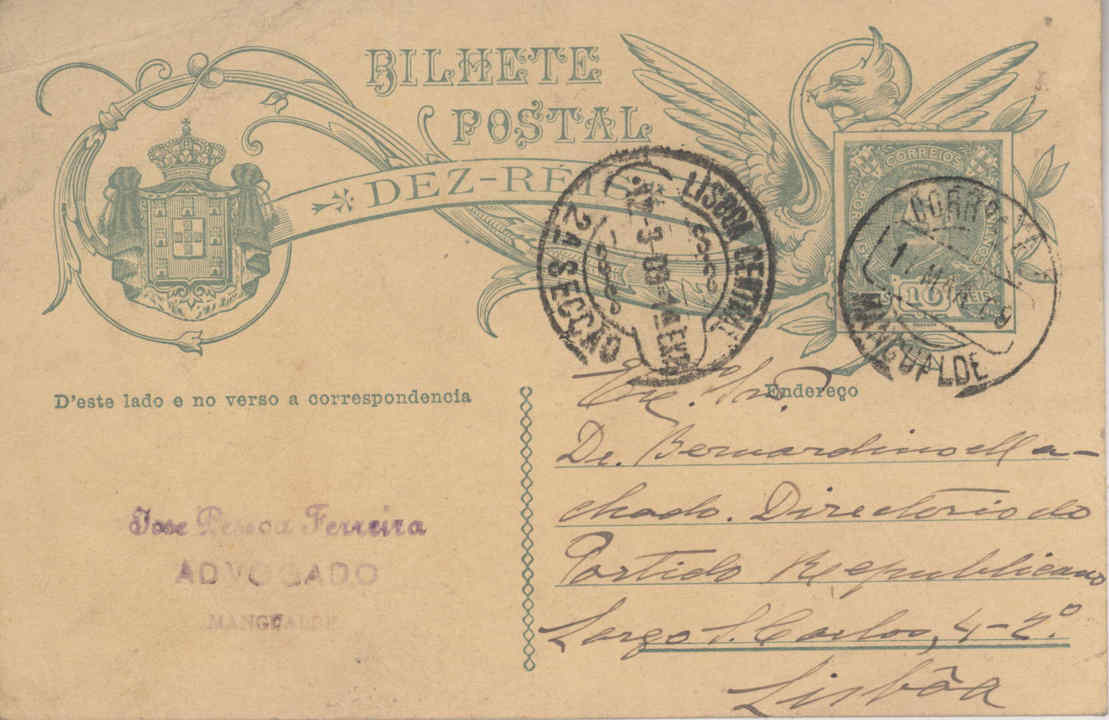 BILHETE
POSTAL
DEZ-RÉIS
CORREIOS
10
LISBOA CENTRAL
2A SECÇÃO
MANGUALDE
D'este lado e no verso a correspondencia
Endereço
Exº. Snr.
Dr. Bernardino Ma-
chado. Directorio do
Partido Republicano
Largo S. Carlos, 4-2º.
Lisbôa
José Pessoa Ferreira
ADVOGADO
MANGUALDE